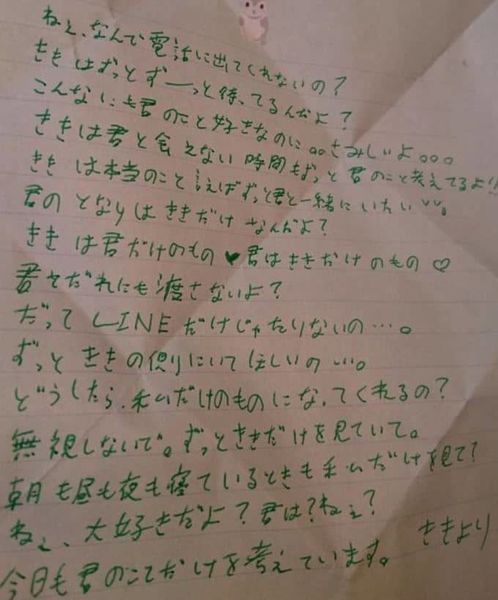 ねぇ、なんで電話に出てくれないの?
ききはずっとずーっと待ってるんだよ?
こんなにも君のこと好きなのに。。さみしいよ。。。
ききは君と会えない時間もずっと君のこと考えてるよ!
ききは本当のこと言えばずっと君と一緒にいたい…。
君のとなりはききだけなんだよ?
ききは君だけのもの♥君はききだけのもの♡
君をだれにも渡さないよ?
だってLINEだけじゃたりないの…。
ずっとききの側りにいてほしいの…。
どうしたら、私だけのものになってくれるの?
無視しないで。ずっとききだけを見ていて。
朝も昼も夜も寝ているときも私だけを見て?
ねぇ、大好きだよ?君は?ねぇ?
今日も君のことだけを考えています。 ききより